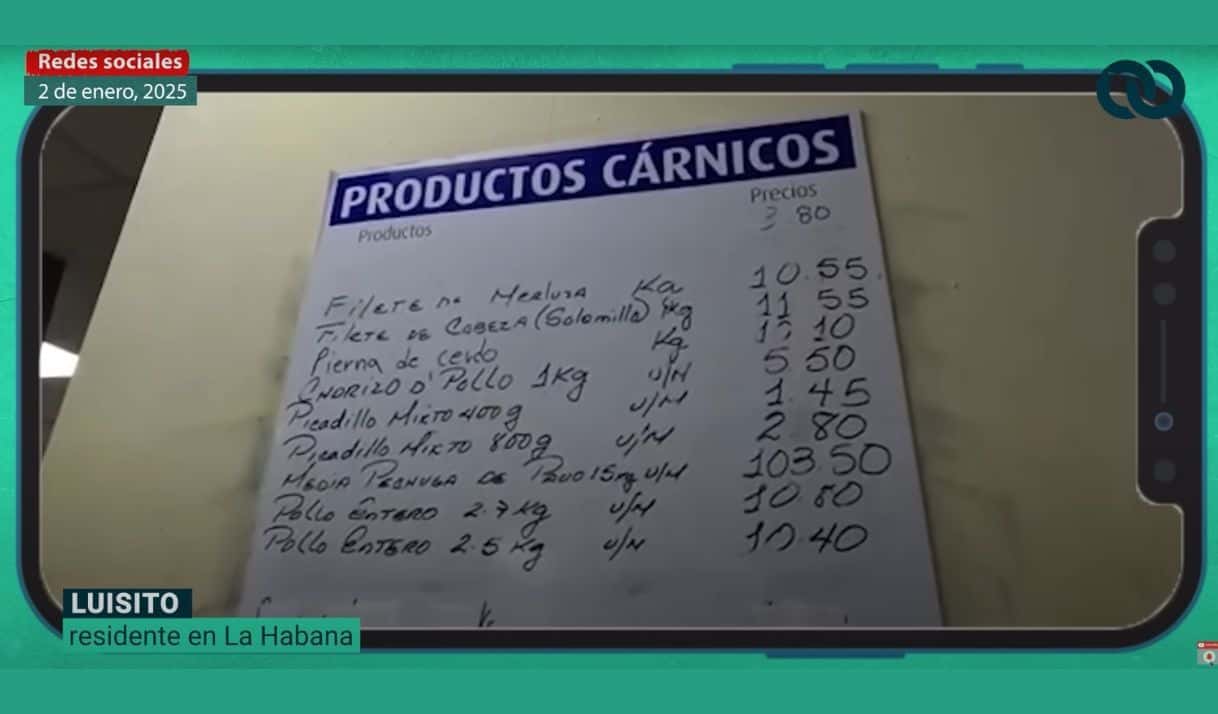 Redes sociales
2 de enero, 2025
PRODUCTOS CÁRNICOS
Productos Precios
80
FILETE DE MERLUSA Kg 10.55
FILETE DE CABEZA (Solomillo) Kg 11 55
Pierna de cerdo Kg 10
CHORIZO D' POLLO 1Kg U/M 5 50
Picadillo MIXTO 400g U/M 1.45
Picadillo MIXTO 800g U/M 2 80
MEDIA PECHUGA DE PAVO U/M 103.50
POLLO ENTERO 2.7 Kg U/M 10 80
POLLO ENTERO 2.5 Kg U/M 10.40
LUISITO
residente en La Habana